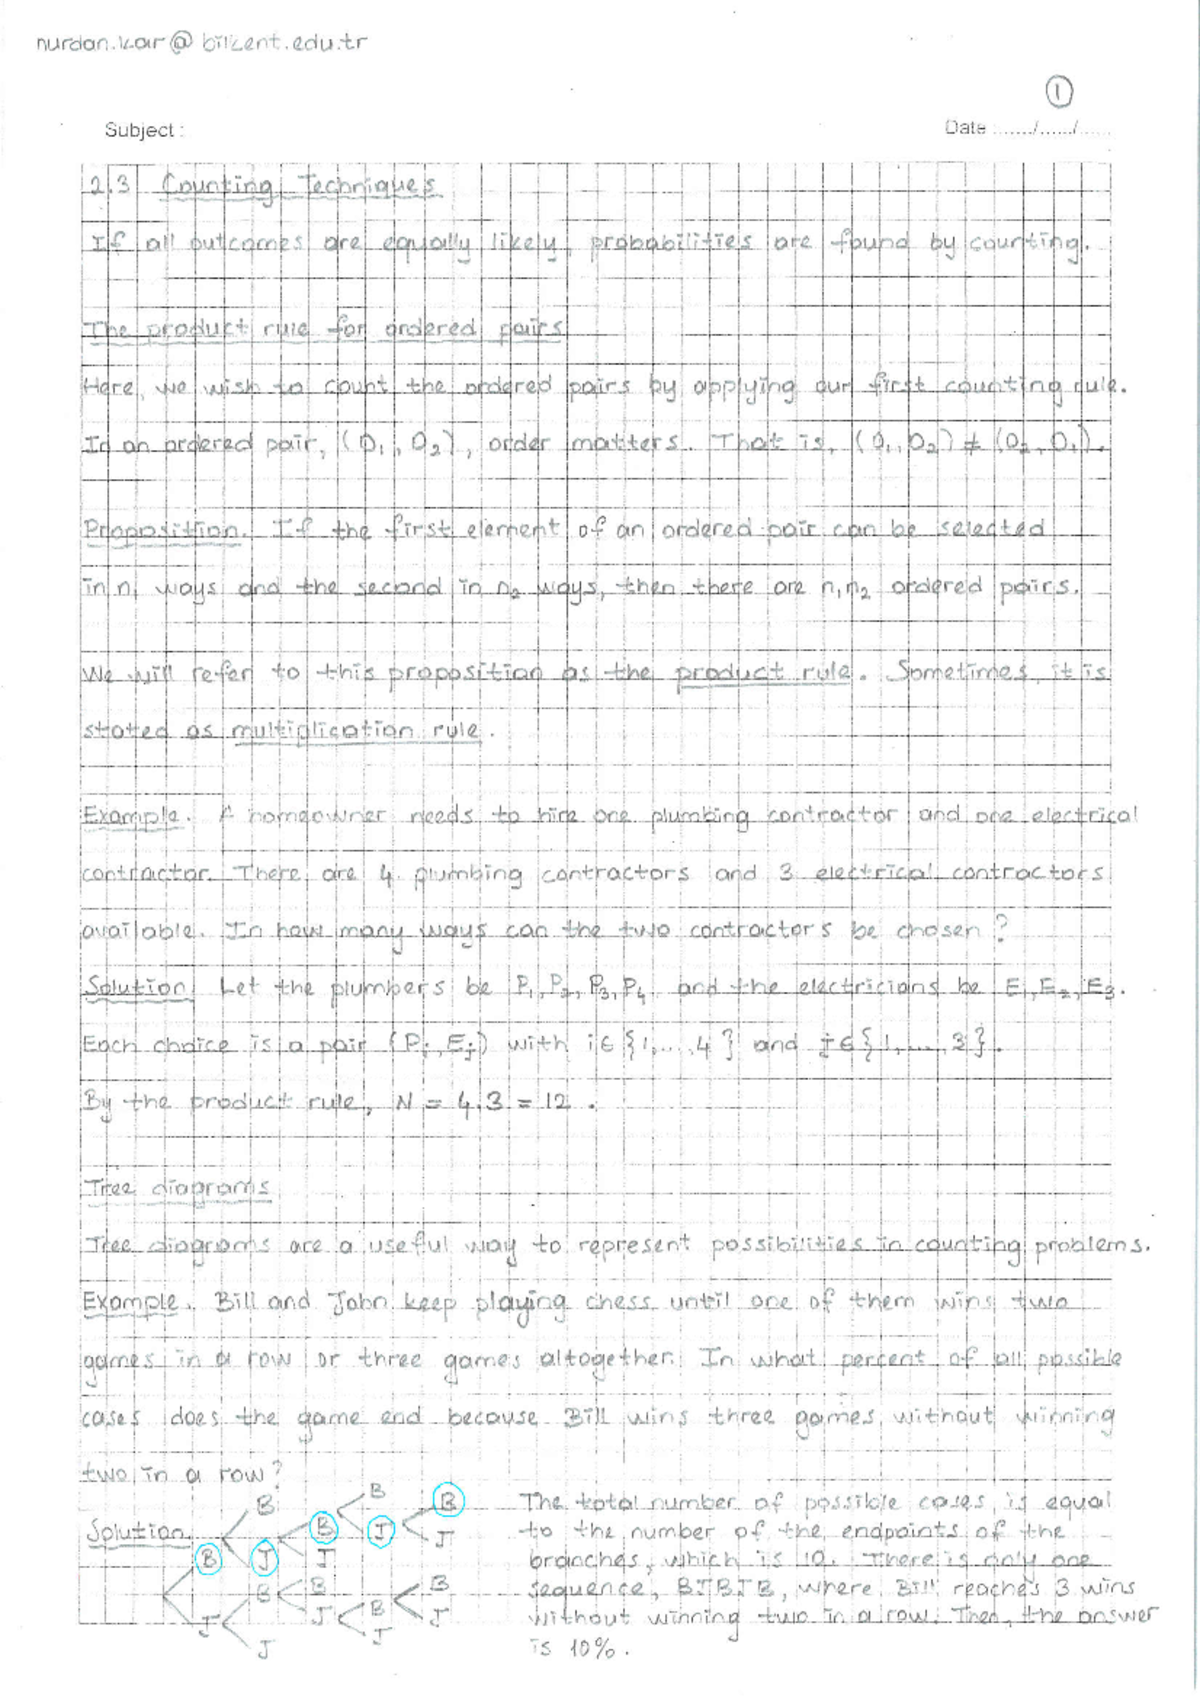 nurdan.kar@bilkent.edu.tr
1
Subject :
Date :....../....../......
2.3 Counting Techniques
If all outcomes are equally likely, probabilities are found by counting.
The product rule for ordered pairs
Here, we wish to count the ordered pairs by applying our first counting rule.
In an ordered pair, (O₁, O₂), order matters. That is, (O₁, O₂) ≠ (O₂, O₁).
Proposition. If the first element of an ordered pair can be selected
in n₁ ways and the second in n₂ ways, then there are n₁n₂ ordered pairs.
We will refer to this proposition as the product rule. Sometimes, it is
stated as multiplication rule.
Example. A homeowner needs to hire one plumbing contractor and one electrical
contractor. There are 4 plumbing contractors and 3 electrical contractors
available. In how many ways can the two contractors be chosen?
Solution Let the plumbers be P₁, P₂, P₃, P₄ and the electricians be E₁, E₂, E₃.
Each choice is a pair (Pᵢ, Eⱼ) with i∈{1,...,4} and j∈{1,...,3}.
By the product rule, N = 4.3 = 12.
Tree diagrams
Tree diagrams are a useful way to represent possibilities in counting problems.
Example. Bill and John keep playing chess until one of them wins two
games in a row or three games altogether. In what percent of all possible
cases does the game end because Bill wins three games without winning
two in a row?
Solution
B J
B J
B J
B J
B J
B J
B J
B J
B J
The total number of possible cases is equal
to the number of the endpoints of the
branches, which is 10. There is only one
sequence, BJBJB, where Bill reaches 3 wins
without winning two in a row. Then, the answer
is 10%.